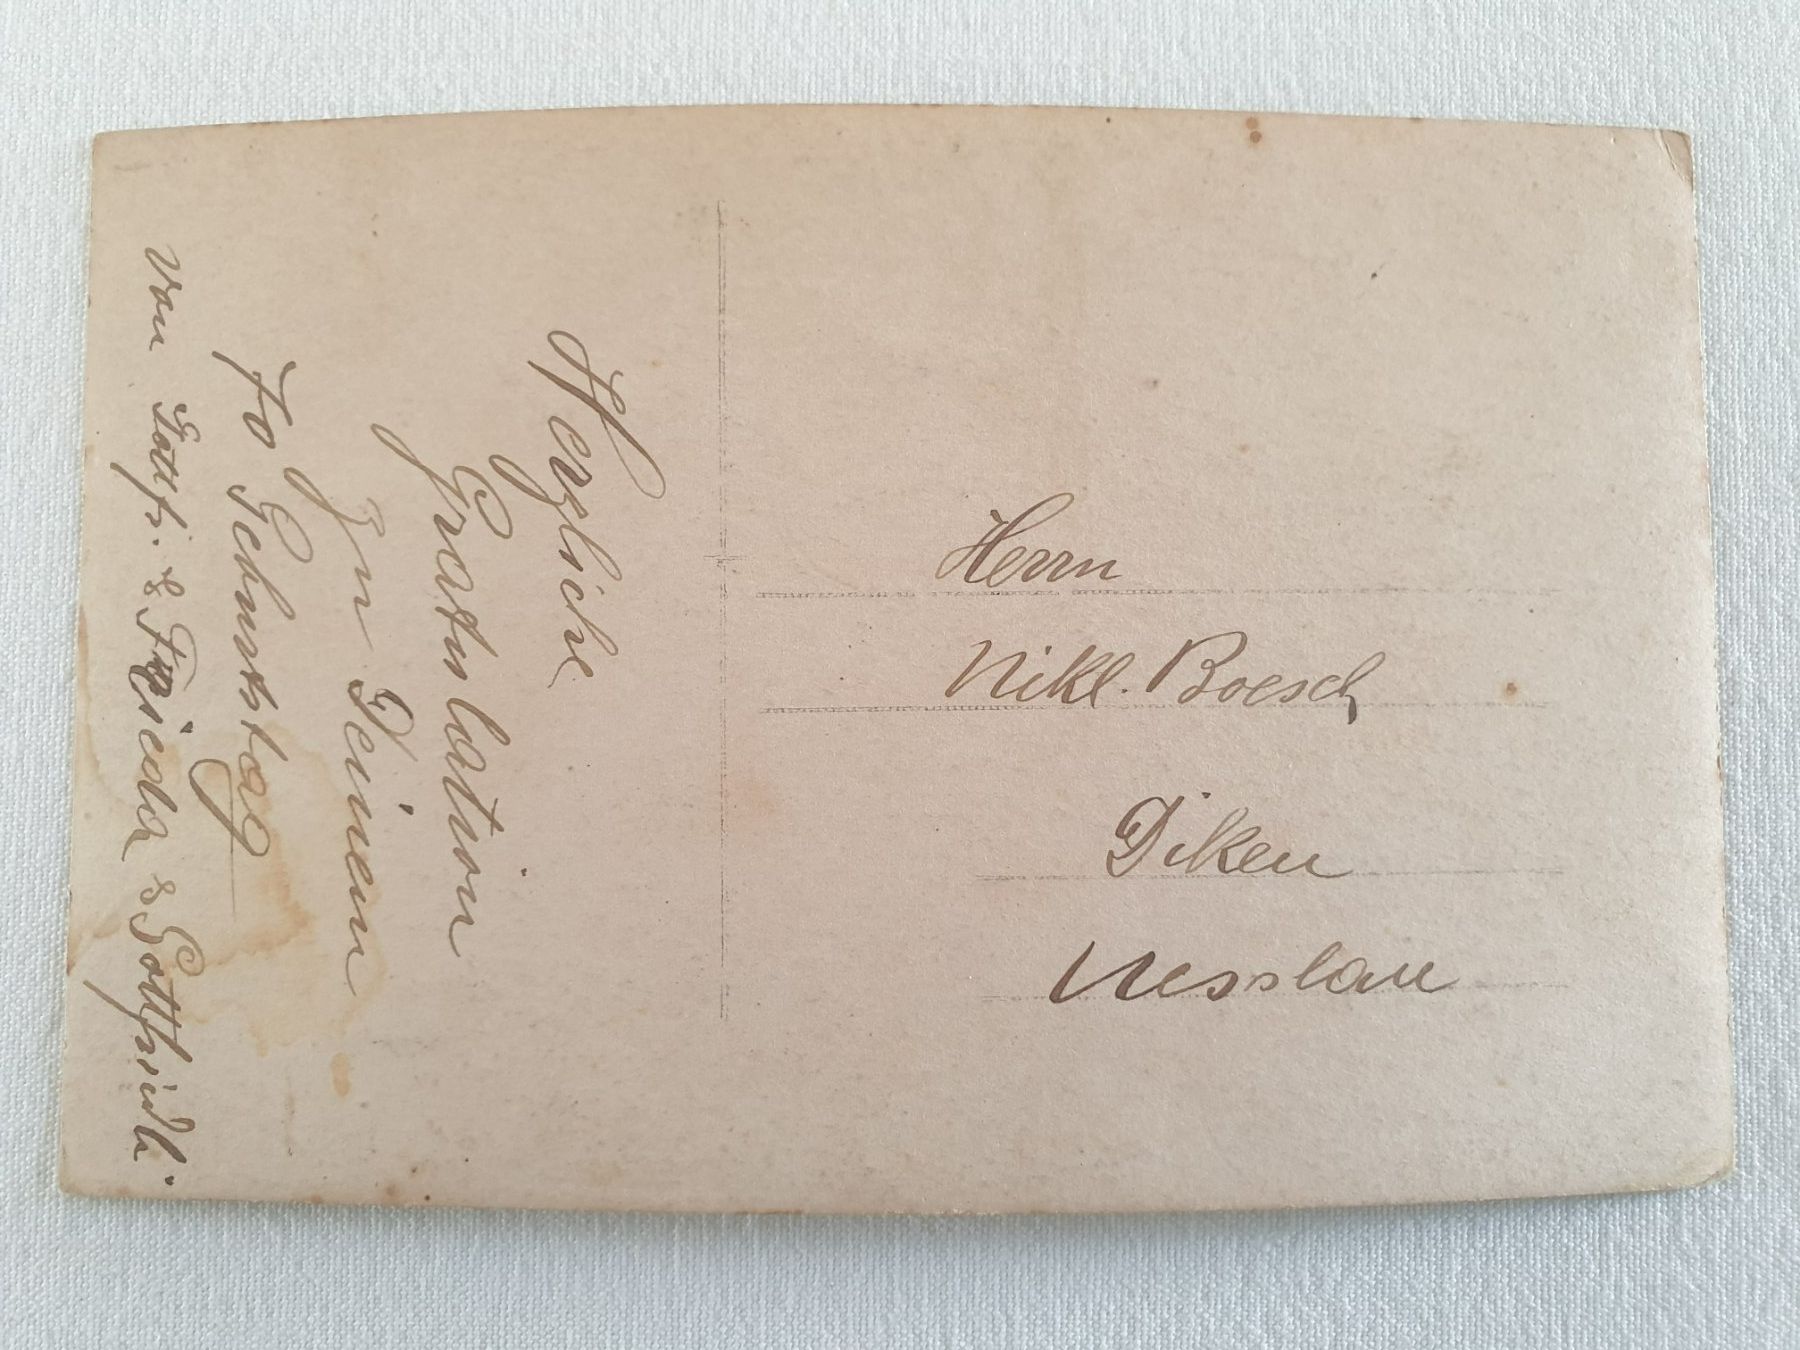 Herzliche
Gratulation
zu Deinem
70 Geburtstag
von Gottfr. & Frieda & Gottfriedli.
Herrn
Nikl. Boesch
Diken
Nesslau